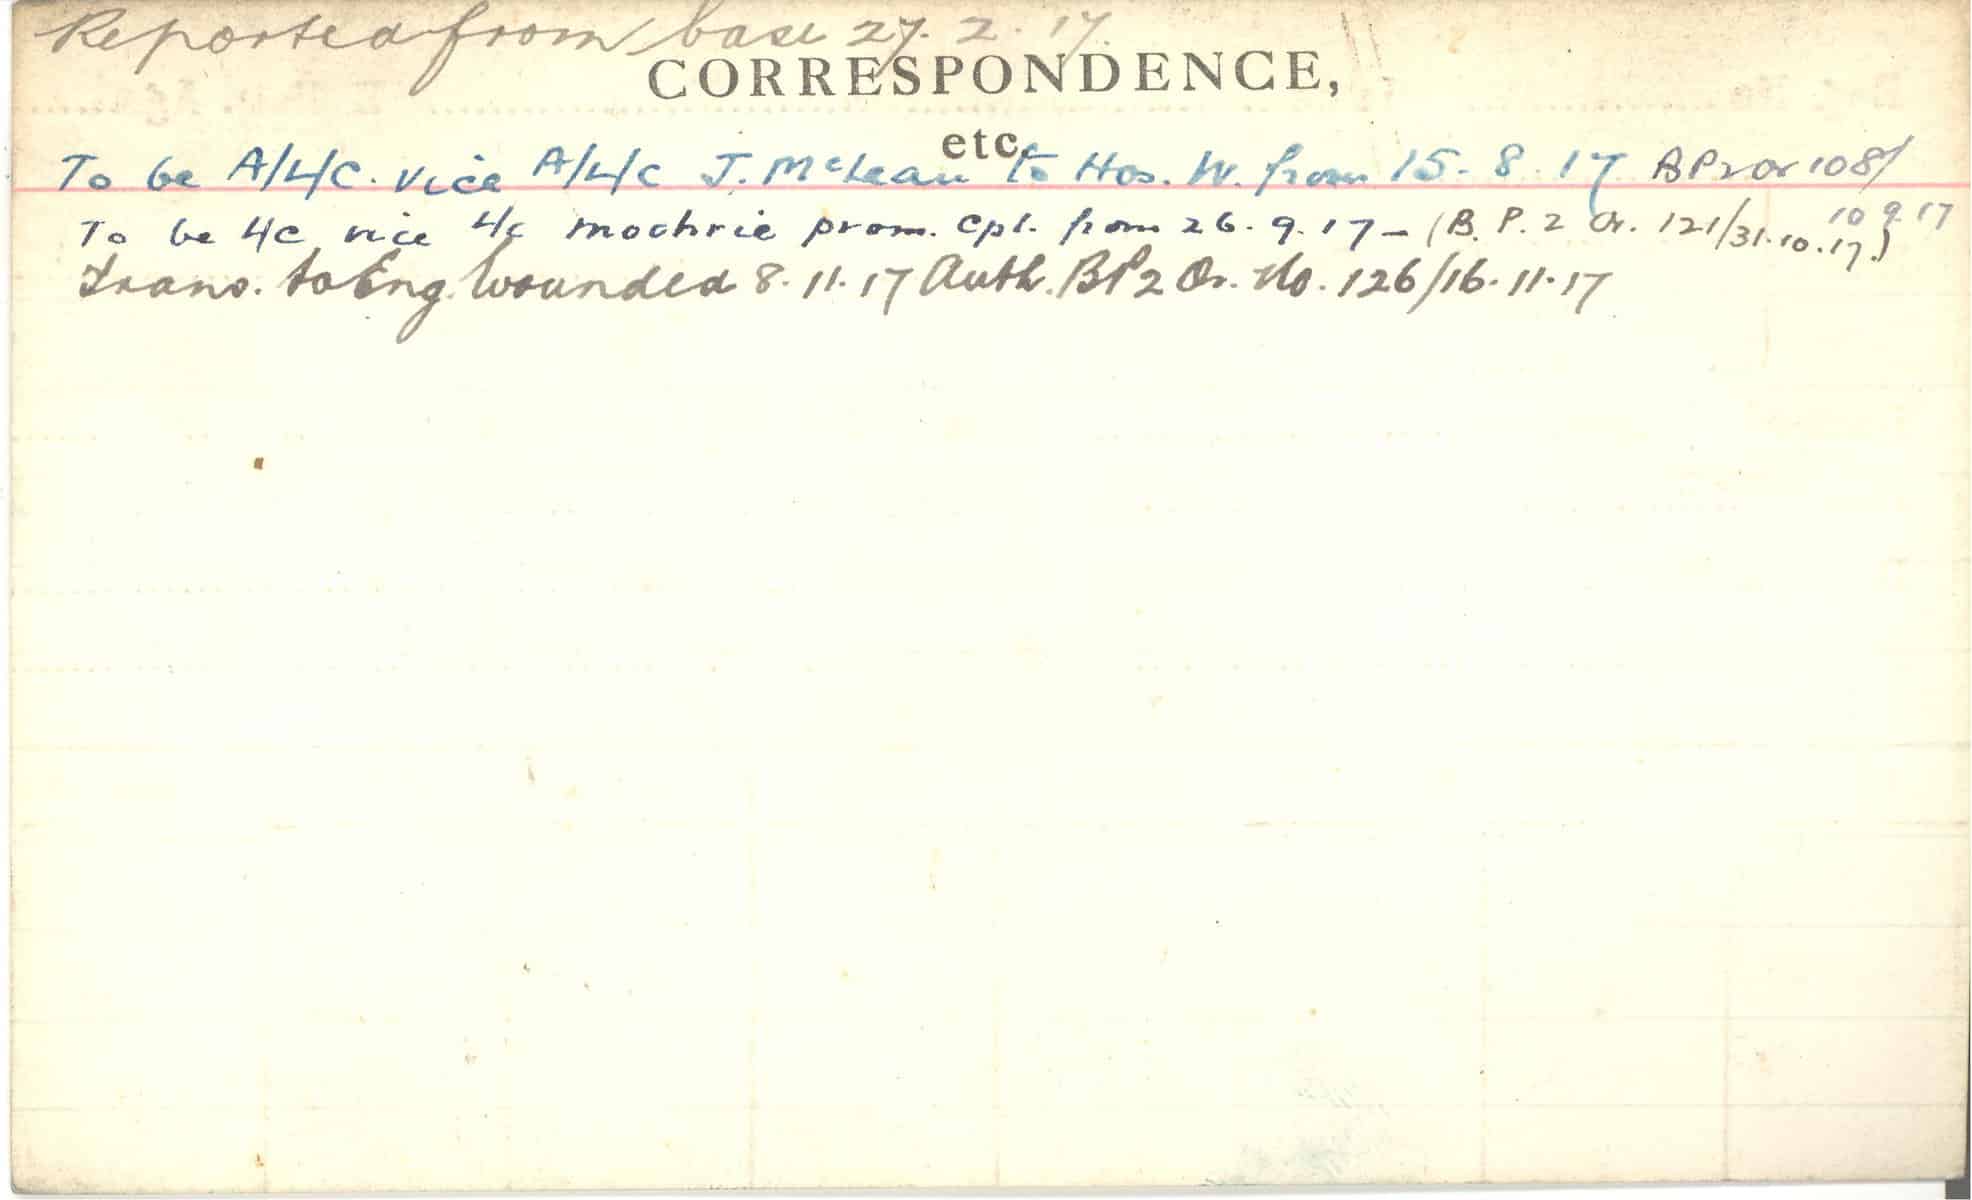 Reported from base 27. 2. 17.
CORRESPONDENCE,
etc.
To be A/L/C. vice A/L/C J. McLean to Hos. W. from 15. 8. 17 BP2 Or 108/
10 9. 17
To be L/C vice L/C Mochrie prom. Cpl. from 26. 9. 17 - (B. P. 2 Or. 121/31.10.17.)
Trans. to Eng. Wounded 8. 11. 17 Auth. BP2 Or. No. 126/16. 11. 17